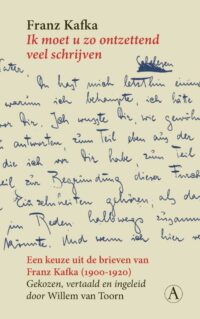 Franz Kafka
Ik moet u zo ontzettend
veel schrijven
Schelesen
Vater,
Du hast mich letzthin einmal
warum ich behaupte, ich hätte
vor Dir. Ich wusste Dir, wie gewöhn
zu antworten, zum Teil eben aus der
die ich vor Dir habe, zum Teil
eil zur Begründung dieser Furch
Einzelheiten gehören, als da
im Reden halbwegs zusamm
könnte. Und wenn ich hier ve
Een keuze uit de brieven van
Franz Kafka (1900-1920)
Gekozen, vertaald en ingeleid
door Willem van Toorn
A